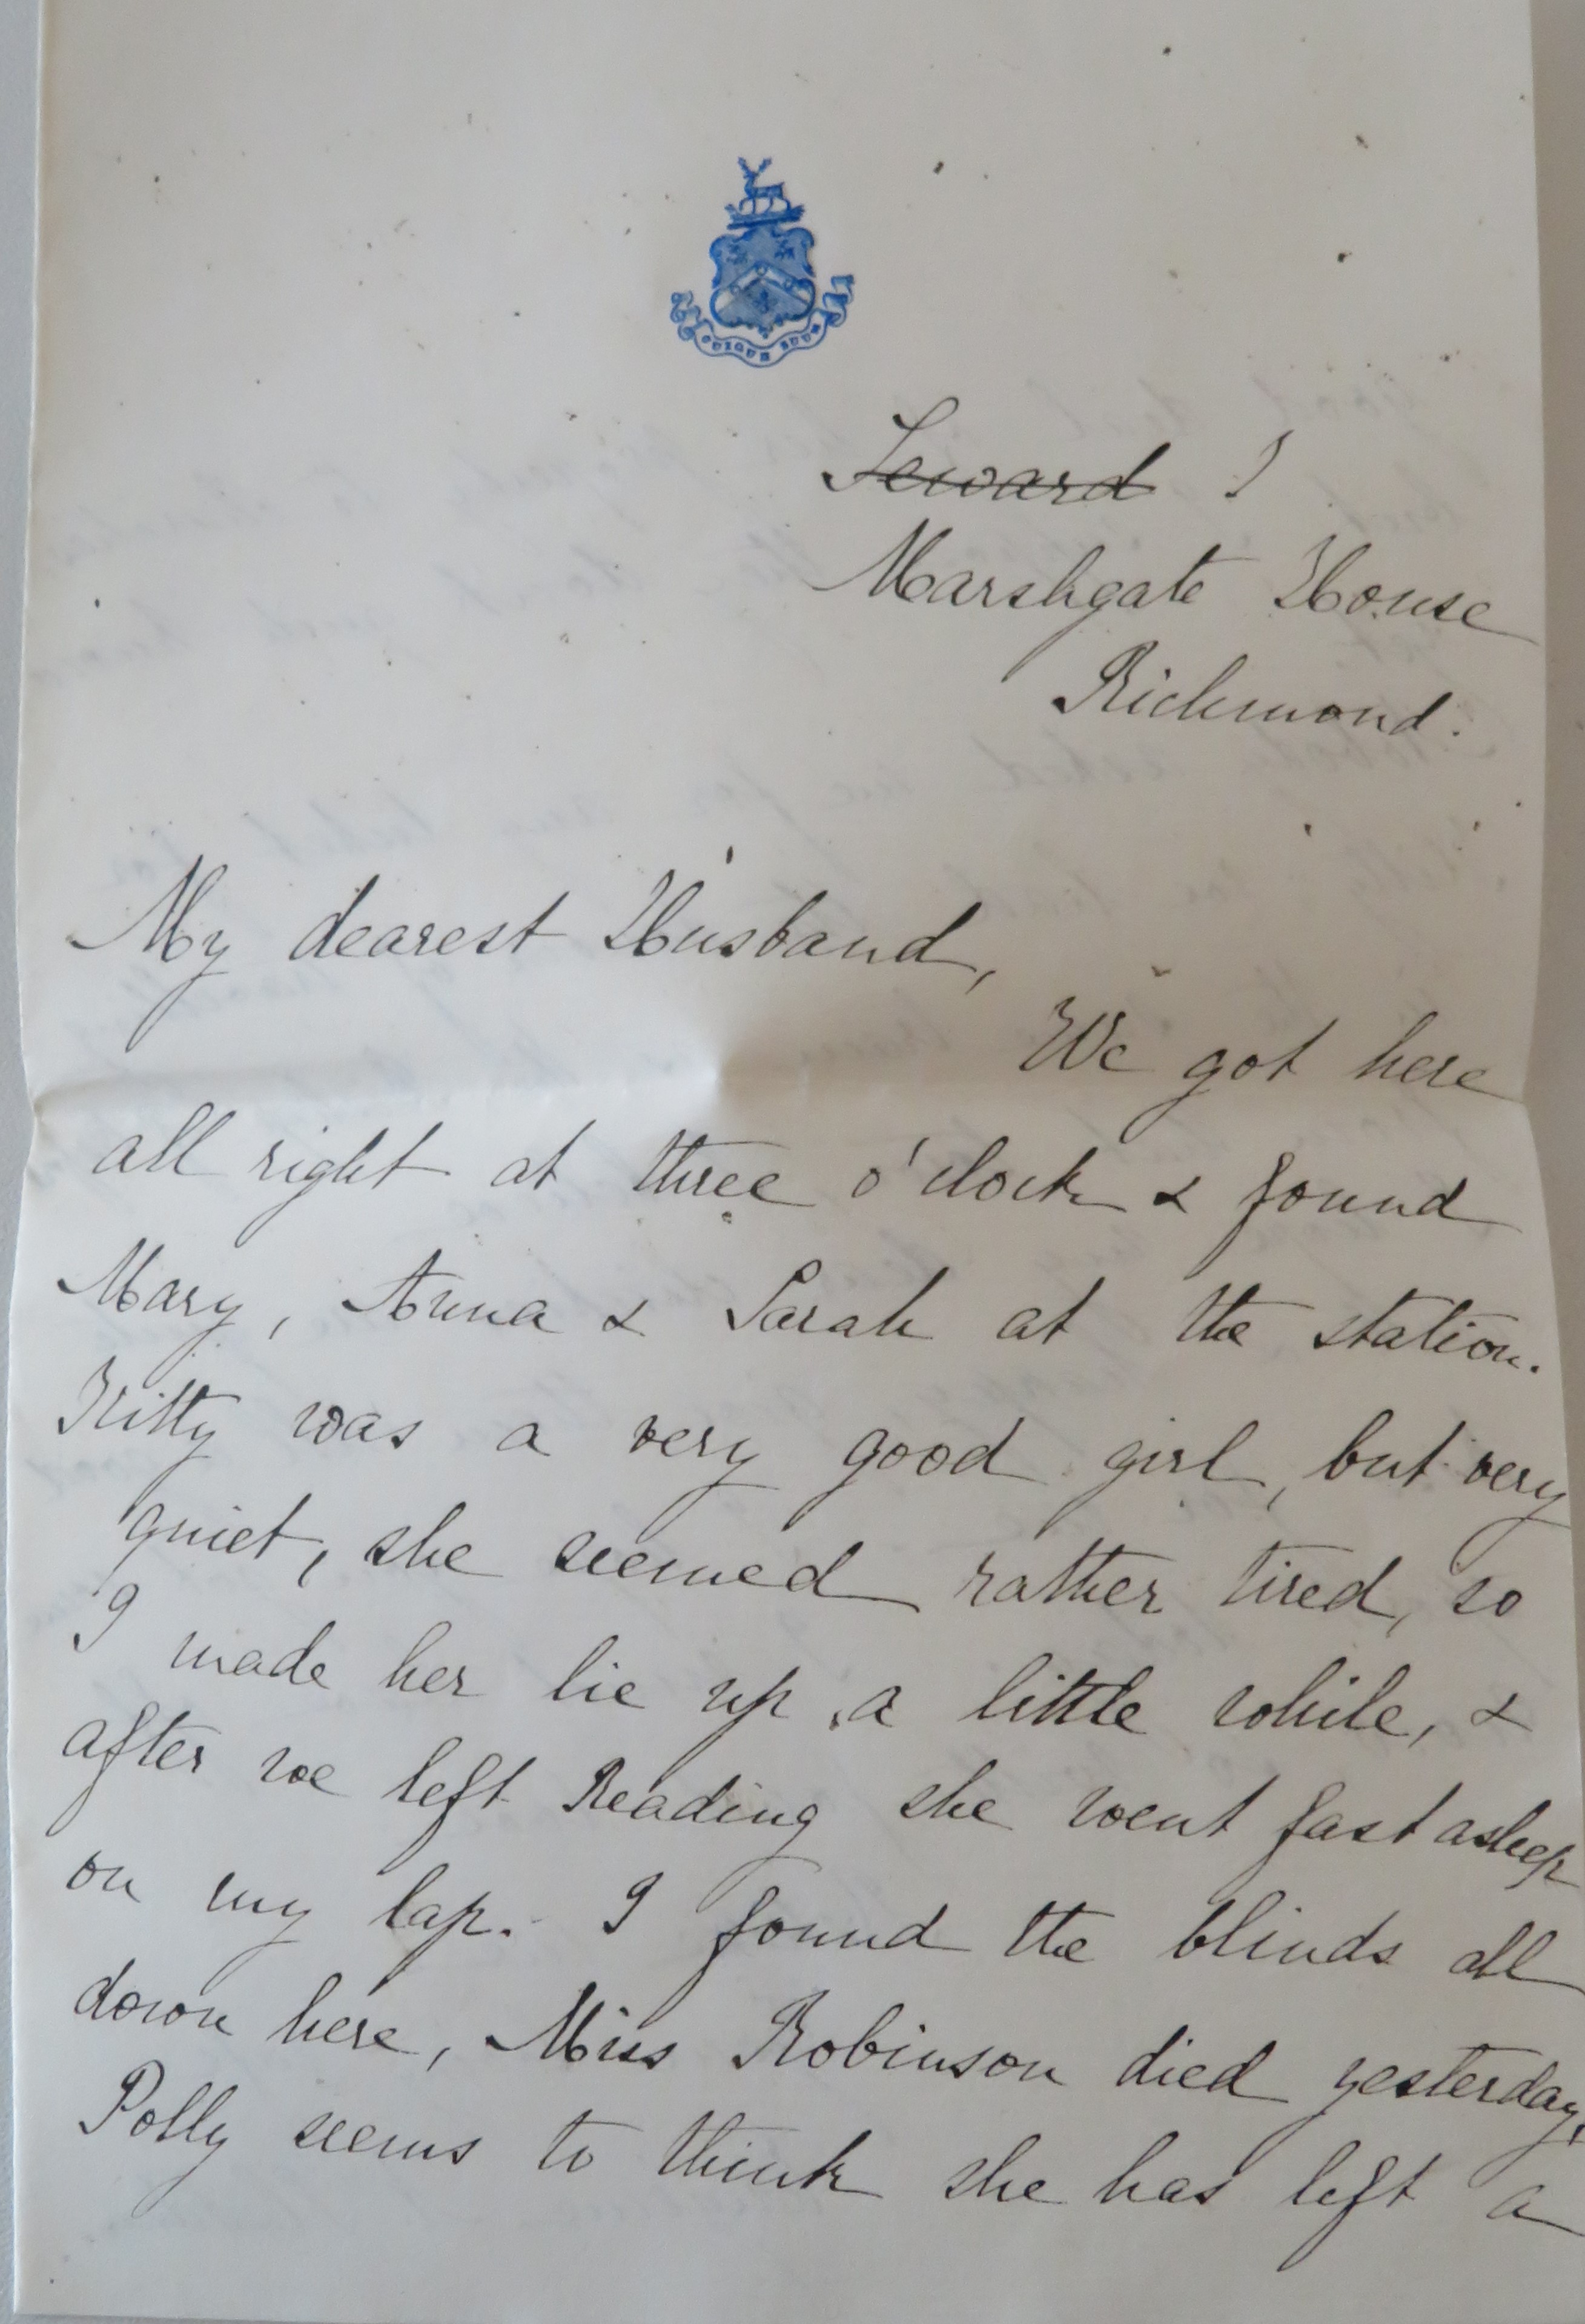 CUIQUE SUUM
Seward !
Marshgate House
Richmond.
My dearest Husband,
We got here
all right at three o'clock & found
Mary, Anna & Sarah at the station.
Kitty was a very good girl, but very
quiet, she seemed rather tired, so
I made her lie up a little while, &
after we left Reading she went fast asleep
on my lap. I found the blinds all
down here, Miss Robinson died yesterday,
Polly seems to think she has left a